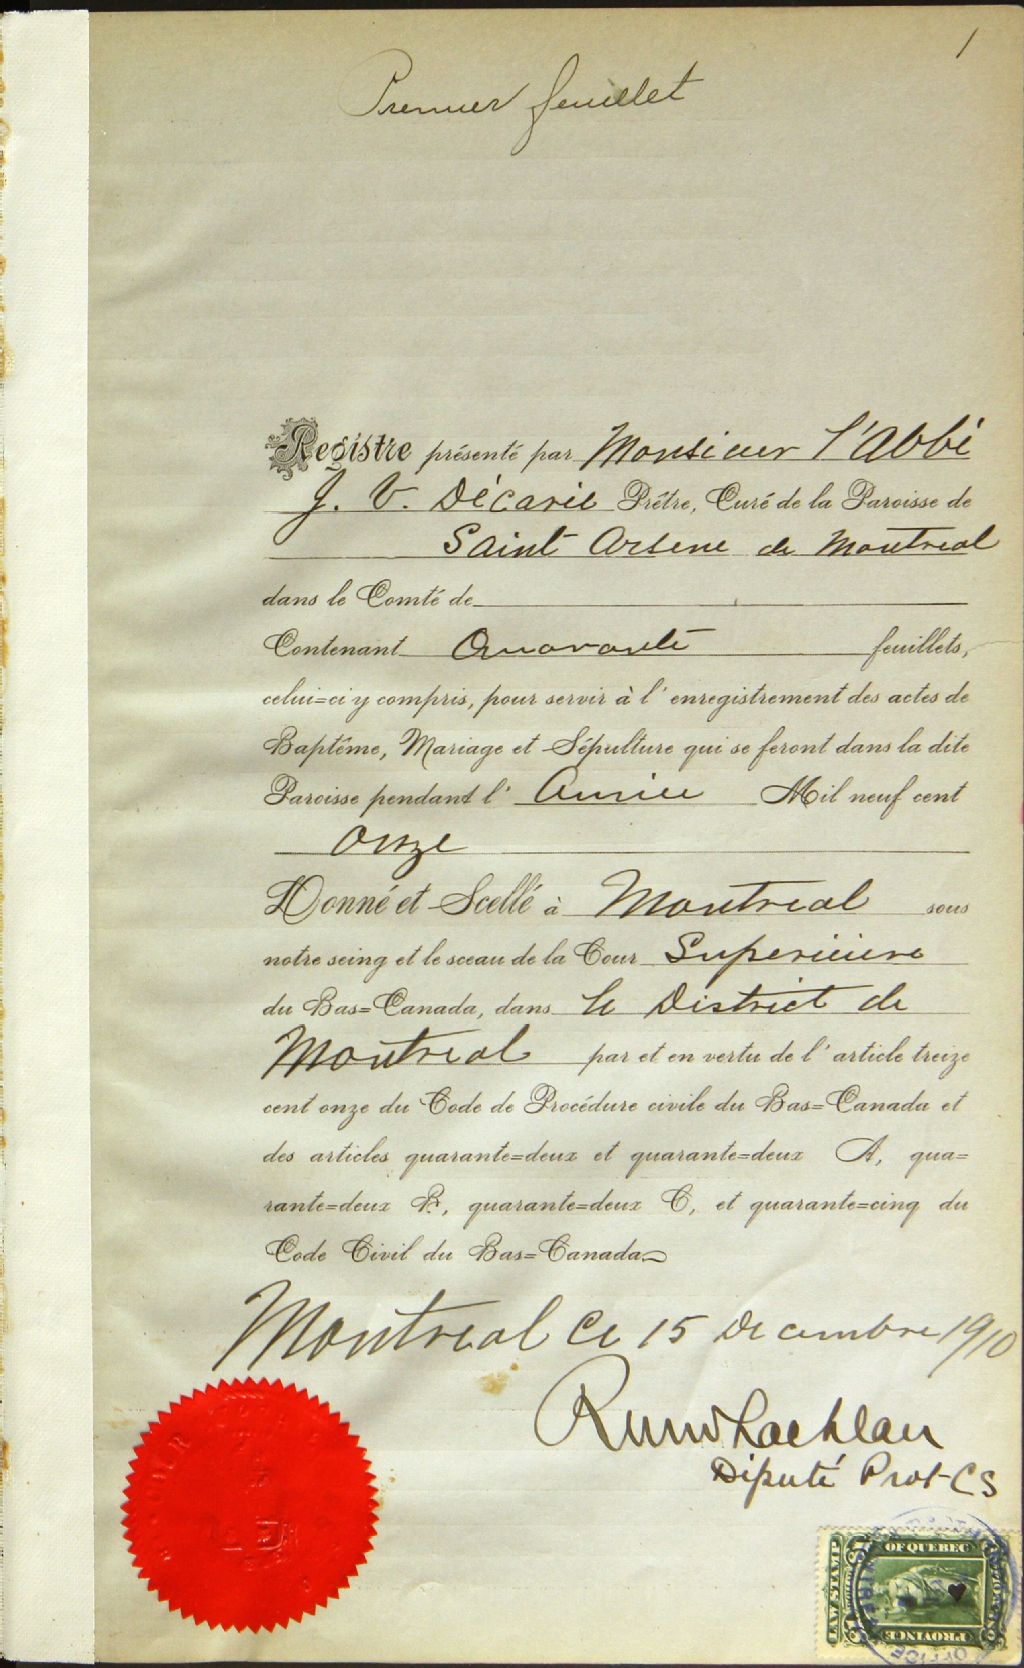 1
Premier feuillet
Registre présenté par Monsieur l'Abbé
J. V. Décarie Prêtre, Curé de la Paroisse de
Saint Arsene de Montreal
dans le Comté de
Contenant Quarante feuillets,
celui=ci y compris, pour servir à l'enregistrement des actes de
Baptême, Mariage et Sépulture qui se feront dans la dite
Paroisse pendant l'Année Mil neuf cent
onze
Donné et Scellé à Montreal sous
notre seing et le sceau de la Cour Superieure
du Bas=Canada, dans le District de
Montreal par et en vertu de l'article treize
cent onze du Code de Procédure civile du Bas=Canada et
des articles quarante=deux et quarante=deux A, qua=
rante=deux B, quarante=deux C, et quarante=cinq du
Code Civil du Bas=Canada
Montreal ce 15 Decembre 1910
Député Prot CS
LAW STAMP
PROVINCE
OF QUEBEC